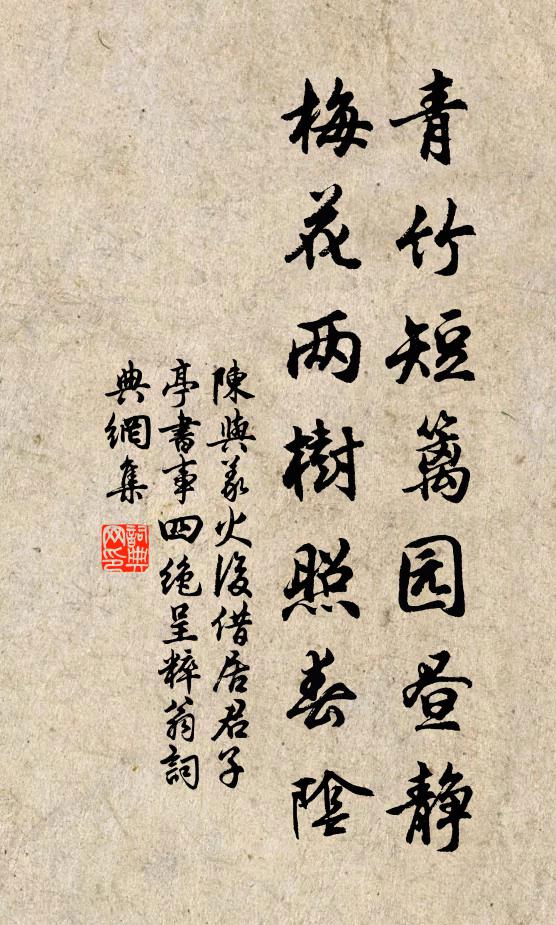 青竹短篱园昼静
梅花两樹照春陰
陳與義火後借居君子
亭書事四絶呈粹翁詞
典網集
詞典
网印